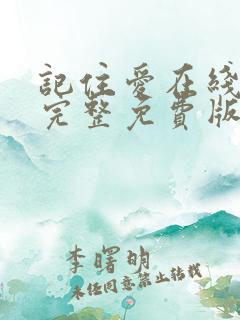 記住愛在綫
完整免費版
李曙明
未經同意禁止轉載